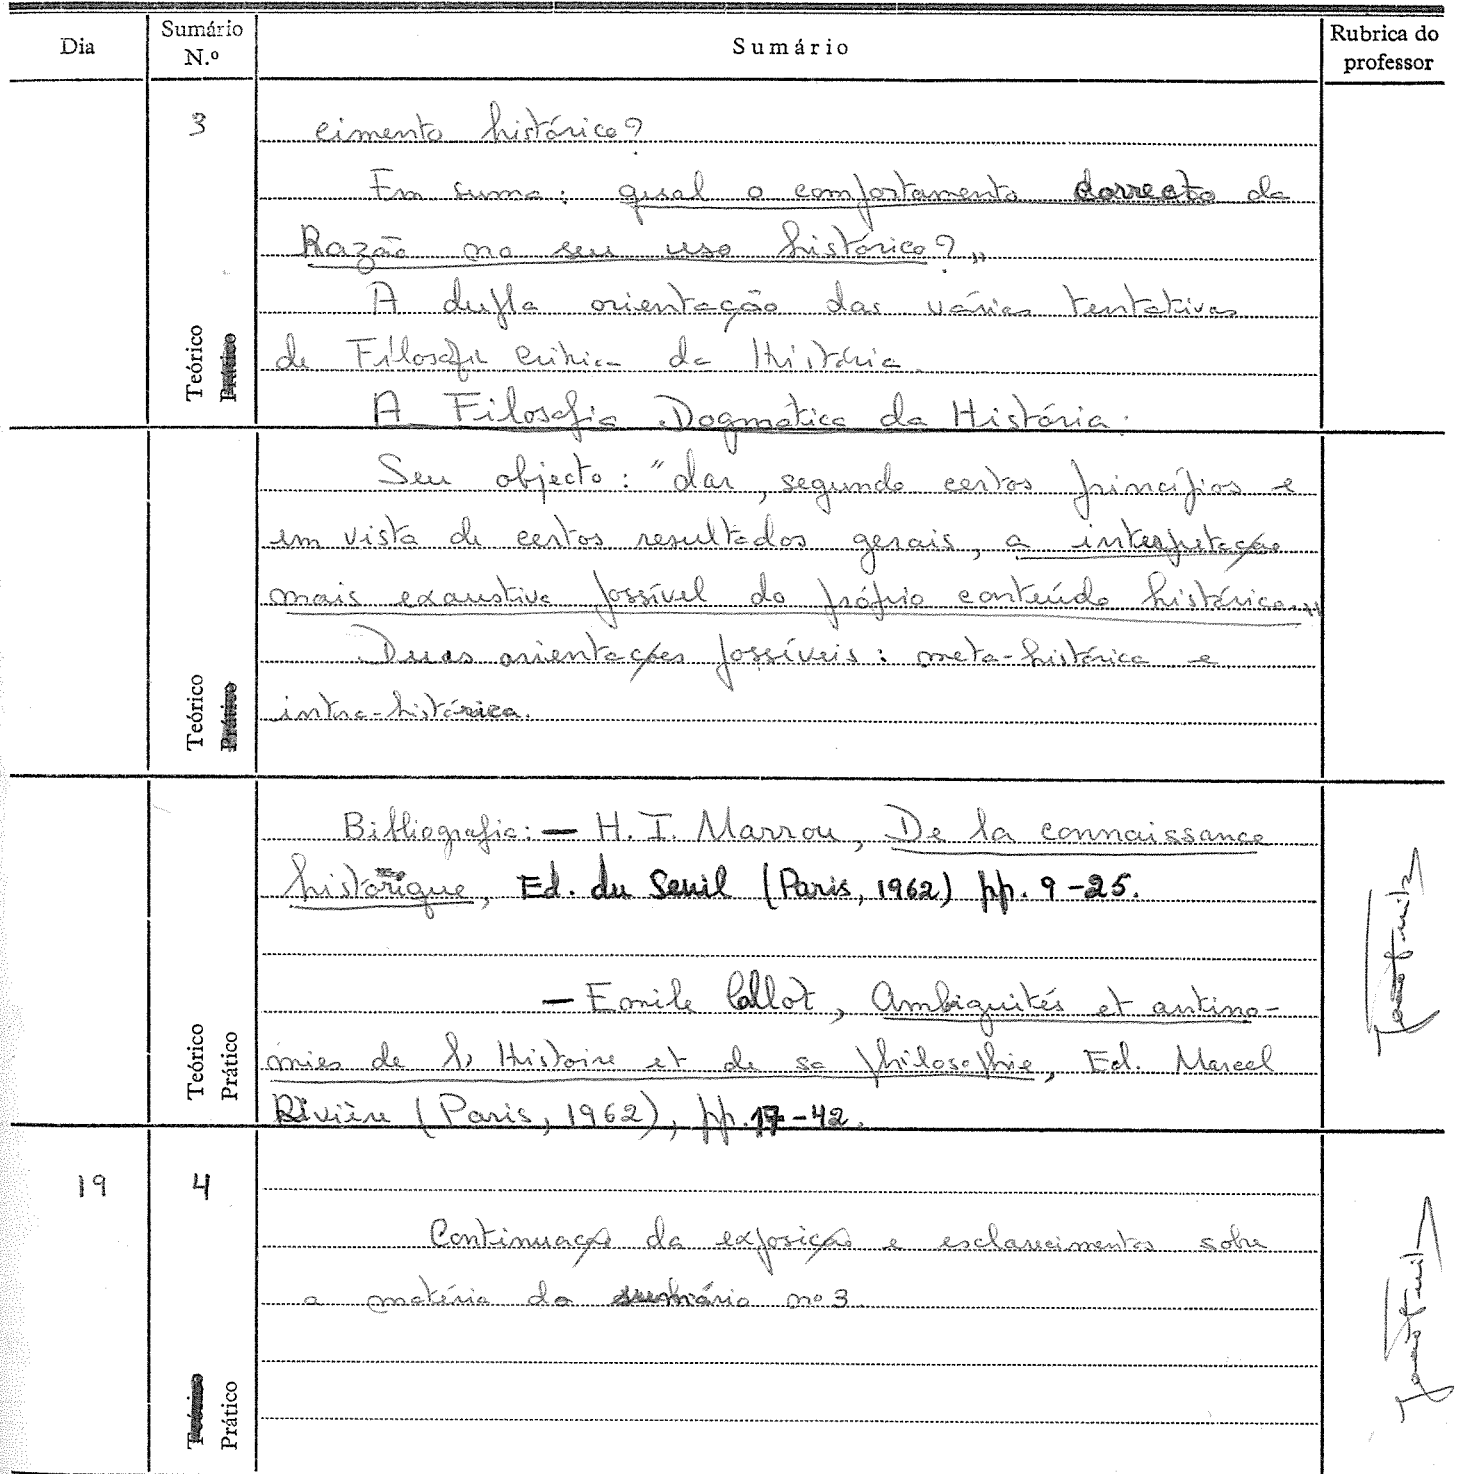 Dia Sumário N.º Sumário Rubrica do professor
3 cimento histórico?
Em suma: qual o comportamento correcto da
Razão no seu uso histórico?"
A dupla orientação das várias tentativas
de Filosofia crítica da História.
A Filosofia Dogmática da História.
Teórico Prático
Seu objecto: "dar, segundo certos princípios e
em vista de certos resultados gerais, a interpretação
mais exaustiva possível do próprio conteúdo histórico..."
Duas orientações possíveis: meta-histórica e
intra-histórica.
Teórico Prático
Bibliografia: — H. I. Marrou, De la connaissance
historique, Ed. du Seuil (Paris, 1962) pp. 9-25.
— Emile Callot, Ambiguités et antino-
mies de l'Histoire et de sa philosophie, Ed. Marcel
Rivière (Paris, 1962), pp. 17-42.
Teórico Prático
19 4
Continuação da exposição e esclarecimentos sobre
a matéria do sumário nº 3.
Teórico Prático